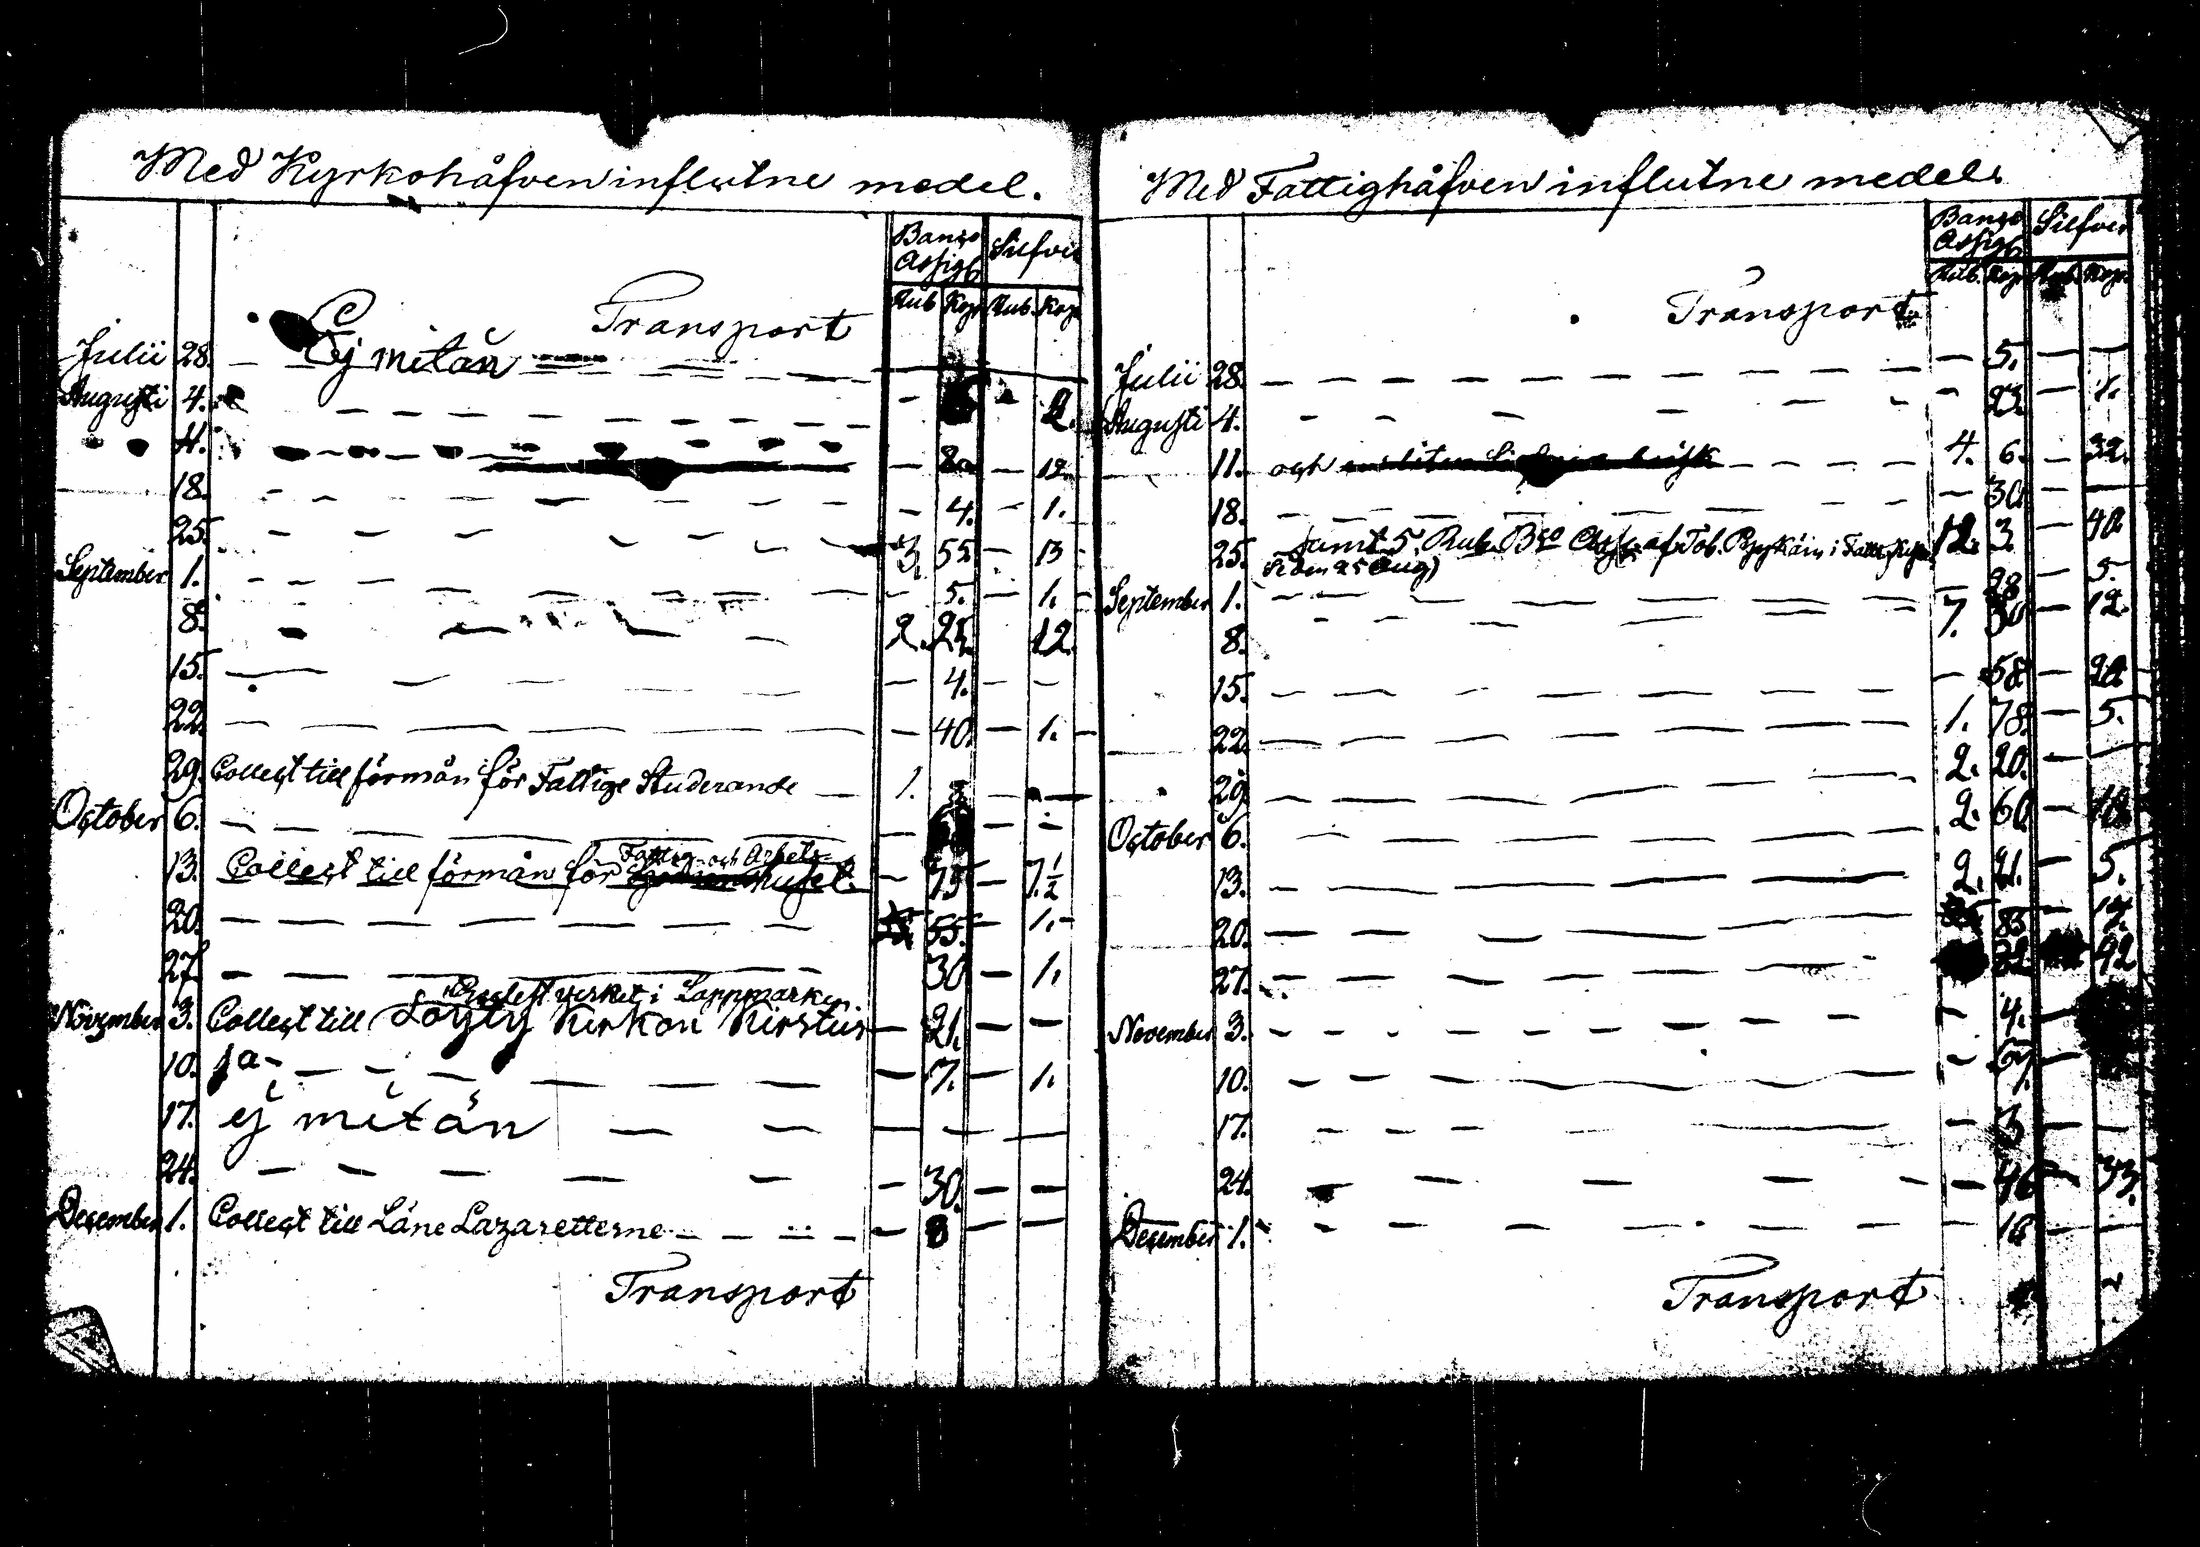 Med Kyrkohåfven influtne medel.
Banco Assign Silfver
Rub. Kop. Rub. Kop.
Transport
Julii 28. Ej mitän
Augusti 4. — — 2.
11. — — 12.
18. — 4. — 1.
25. 3. 55. — 13
September 1. — 5. — 1.
8. 2. 25. 12.
15. — 4. — —
22. — 40. — 1.
29. Collect till förmån för Fattige Studerande — 1. — —
October 6. — — —
Fattig- och Arbets-
13. Collect till förmån för huset. — 75 — 7½
20. 55. — 1.
27. 30 — 1.
verket i Lappmarken
November 3. Collect till Löyty Kirkon Kirstus — 21. — —
10. ja — — 7. — 1.
17. ej mitän — — — —
24. — 30. — —
December 1. Collect till Läne Lazaretterne — 8 — —
Transport
Med Fattighåfven influtne medel.
Banco Assign Silfver
Rub. Kop. Rub. Kop.
Transport
Julii 28. — 5. — —
Augusti 4. — 23. — 1.
11. och 4. 6. — 32.
18. — 30. — —
25. samt 5. Rub. Bco Assign af Tob. i 12. 3. — 40
(den 25 Aug)
September 1. — 28 — 5.
8. 7. 30 — 12.
15. — 58. — 20
22. 1. 78. — 5.
29. 2. 20. —
October 6. 2. 60 — 10
13. 2. 21. — 5.
20. 85 —
27. 32 42
November 3. — 4. —
10. — 57. —
17. — 3 — —
24. — 46 — 33.
December 1. — 18 — —
Transport